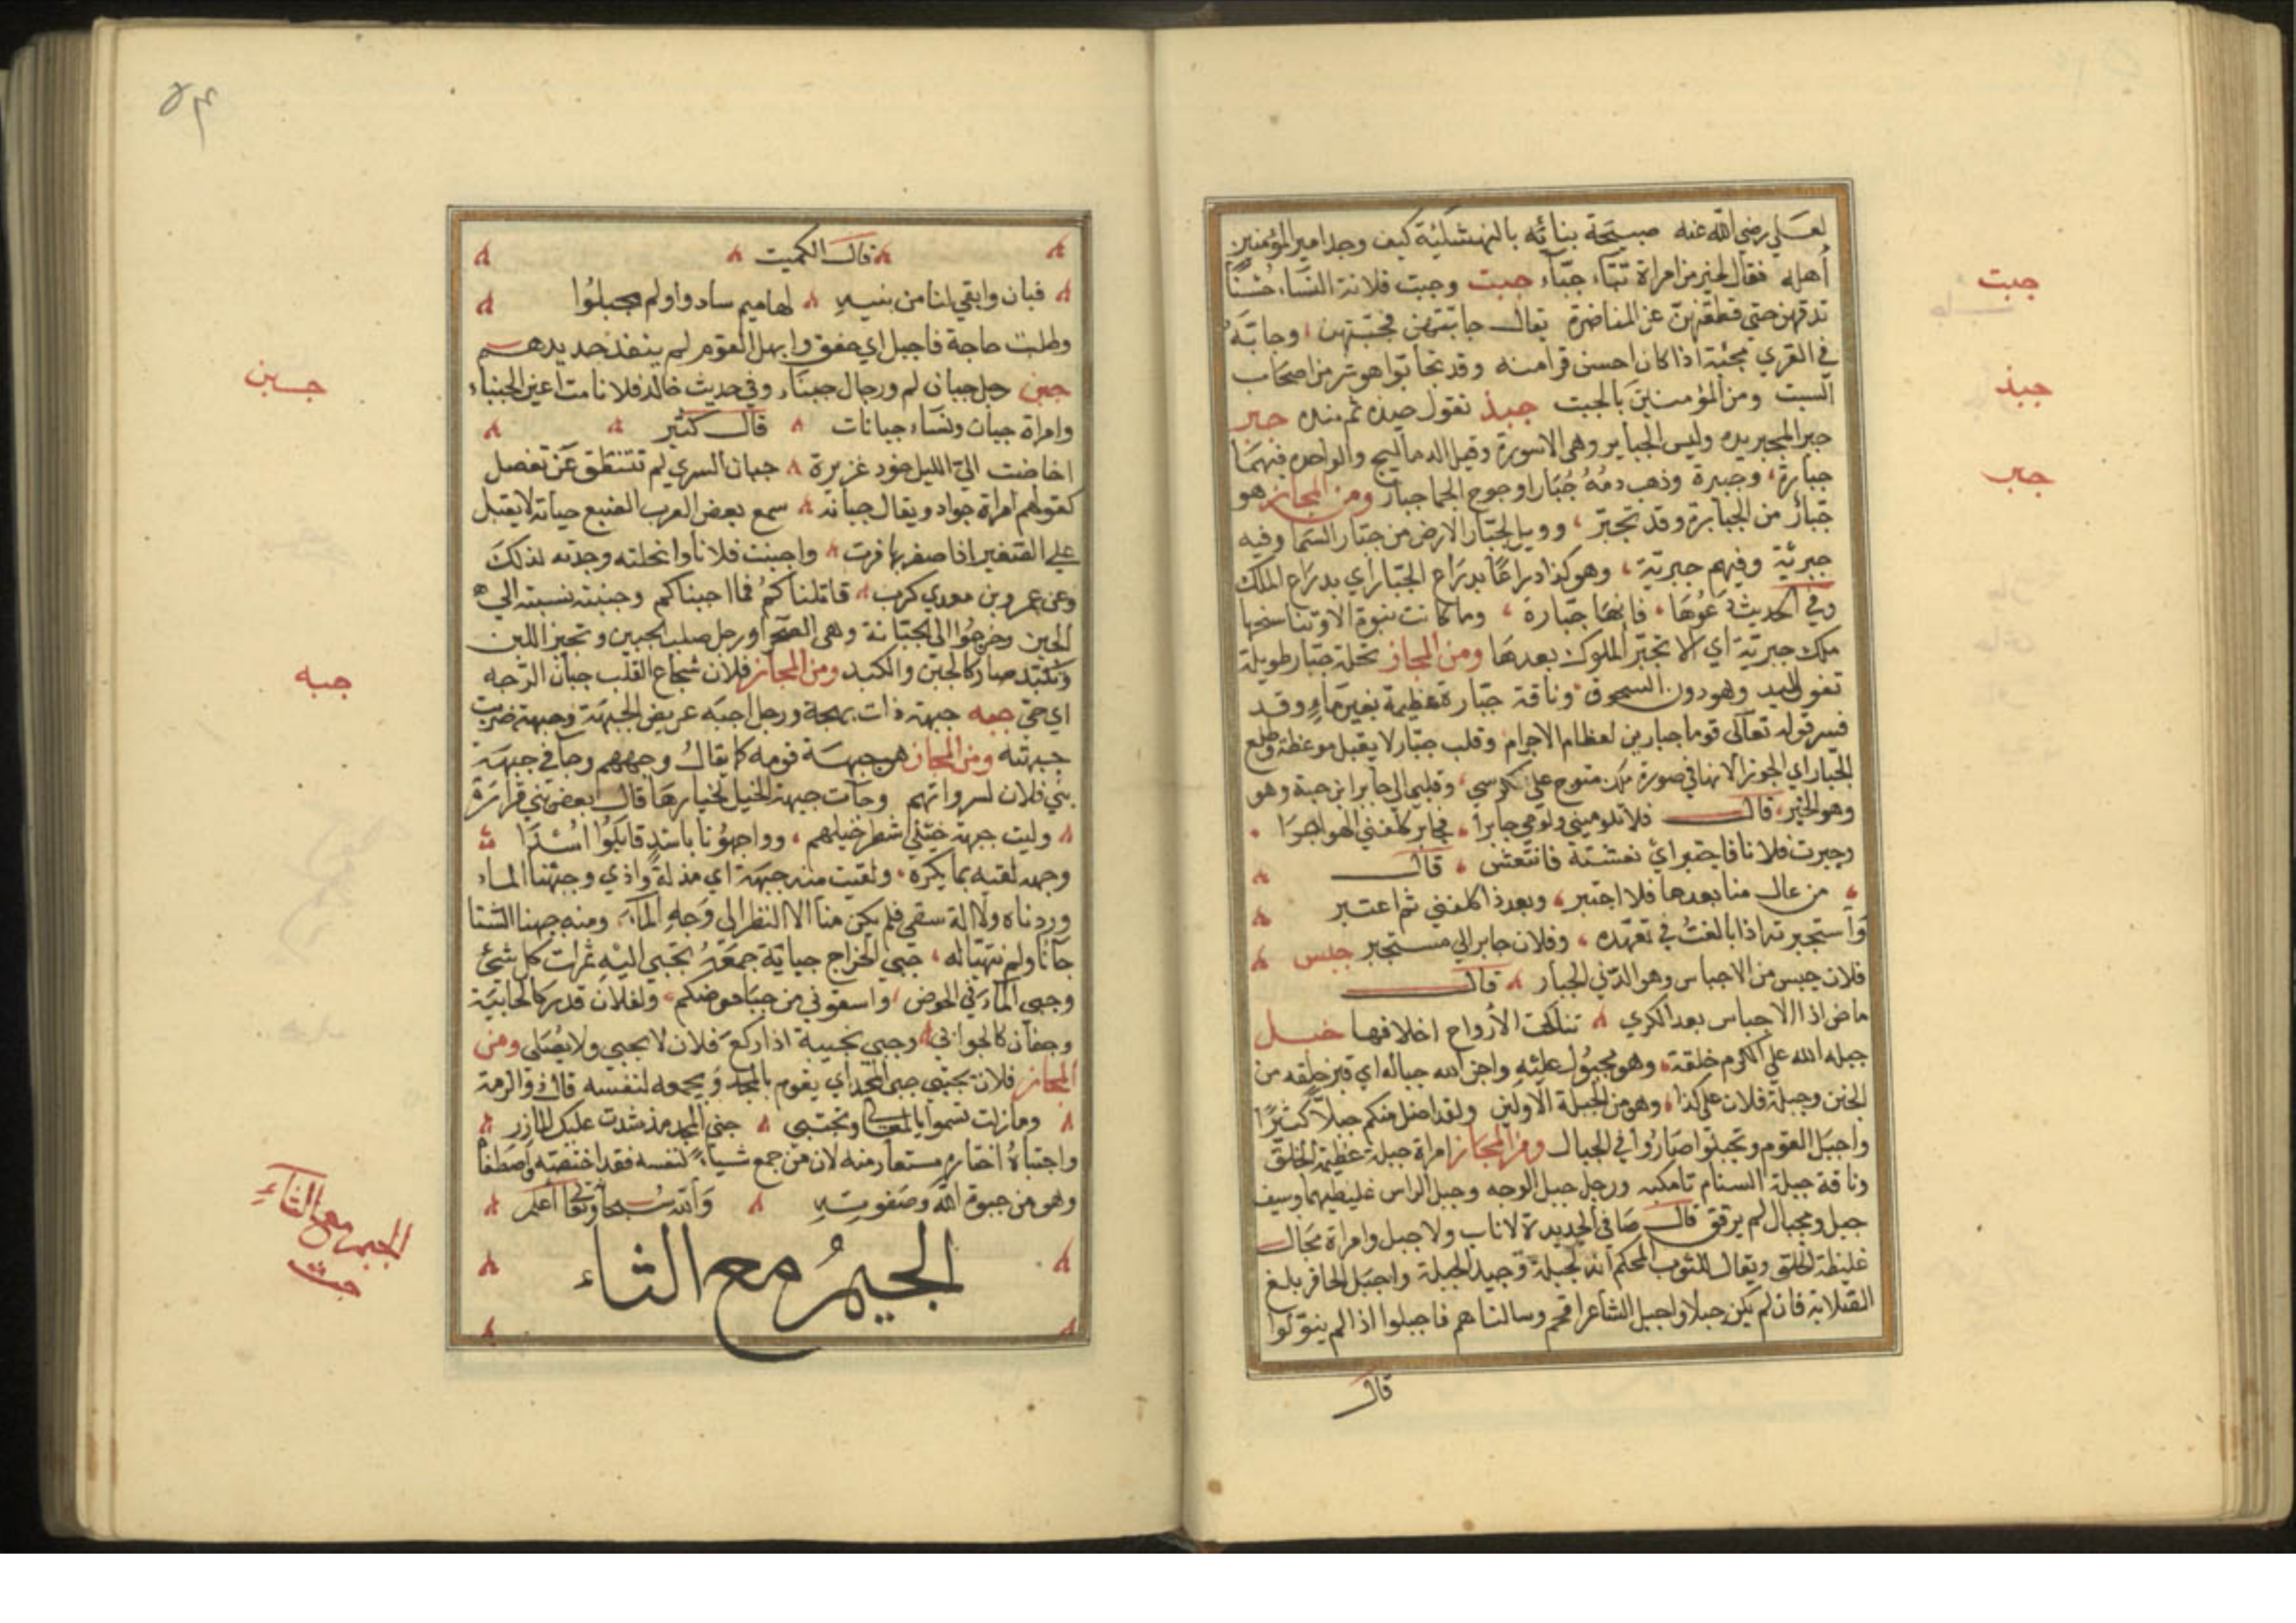 لعلي رضي الله عنه صبيحة بنائه بالنهشلية كيف وجد امير المؤمنين
أهله فقال لخير من امراة قباء جباء جبت وجبت فلانة النساء حسنا
جبت
تدقهن حتى قطعهن عن المناضرة يقال جابتهن فجبتهن وجابته
في القري فجبته اذا كان احسن قرا منه وقد تجابوا هو شر من اصحاب
السبت ومن المؤمنين بالجبت جبذ تقول جبذه ثم نبذه جبر
جبذ
جبر المجبر يده وليس الجباير وهي الاسورة وقيل الدماليج والواحده فيهما
جبارة وجبيرة وذهب دمه جبارا وجرح العجما جبار ومن المجاز هو
جبر
جبار من الجبابرة وقد تجبر وويل لجبار الارض من جبار السما وفيه
جبرية وفيهم جبرية وهو كذا ذراعا بذراع الجبار اي بذراع الملك
وفي الحديث دعوها فانها جبارة وما كانت نبوة الا وتناسخها
ملك جبرية اي الا تجبر الملوك بعدها ومن المجاز نخلة جبار طويلة
تفوق اليد وهو دون السحوق وناقة جبارة عظيمة بغير ماء وقد
فسر قوله تعالى قوما جبارين لعظام الاجرام وقلب جبار لا يقبل موعظة وطلع
الجبار اي الجوزا لانها في صورة ملك متوج على كرسي وقلبها الى جابر ابن حبة وهو
وهو الخبز قال فلا تلوميني ولومي جابرا فجابر كلفني الهواجرا
وجبرت فلانا فاجتبر اي نعشته فانتعش قال
من عال منا بعدها فلا اجتبر وبعد ذا كلفني ثم اعتبر
وأستجبرته اذا بالغت في تعهده وفلان جابر الي مستجبر جبس
فلان جبس من الاجباس وهو الدني الجبار قال
ما ض اذا الاجباس بعد الكري تناكحت الأرواح اخلافها جبل
جبله الله على الكرم خلقة وهو مجبول عليه واجن الله جباله اي قبر خلقه من
الجنن وجبلة فلان على كذا وهو من الجبلة الاولين ولقد اضل منكم جبلا كثيرا
واجبل القوم وتجبلوا صاروا في الجبال ومن المجاز امراة جبلة عظيمة الخلق
وناقة جبلة السنام تامكته ورجل جبل الوجه وجبل الراس غليظهما وسيف
جبل ومجبال لم يرقق قال صافي الحديدة لا ناب ولا جبل وامراة مجبال
غليظة الخلق ويقال للثوب المحكم انه لجيد الجبلة واجبل الحافر بلغ
الصلابة فان لم يكن جبلا واجبل الشاعر افحم وسالناهم فاجبلوا اذا لم ينولوا
قال
٥٣
قال الكميت
فبان وابقي لنا من بنيه لهاميم سادوا ولم يجبلوا
وطلبت حاجة فاجبل اي اخفق وابهل القوم لم ينفذ حديدهم
جبن رجل جبان لم ورجال جبناء وفي حديث خالد فلا نامت اعين الجبناء
جبن
وامراة جبان ونساء جبانات قال كثير
اخاضت الي الليل خود غريرة جبان السري لم تنتطق عن تفضل
كقولهم امراة جواد ويقال جبانة سمع بعض العرب الضبع جبانة لا تقبل
علي الصفير اذا صفر بها فرت واجبنت فلانا وابخلته وجدته لذلك
وعن عمرو بن معدي كرب قاتلناكم فما اجبناكم وجبنته نسبته الي
الجبن وخرجوا الى الجبانة وهي الصحرا ورجل صلب الجبين وتجبن اللبن
وتكبد صار كالجبن والكبد ومن المجاز فلان شجاع القلب جبان الوجه
اي حيي جبه جبهة ذات بهجة ورجل اجبه عريض الجبهة وجبهته ضربت
جبه
جبهته ومن المجاز هو جبهة قومه كما يقال وجههم وجا في جبهة
بني فلان لسرواتهم وجات جبهة الخيل لخيارها قال بعض بني فزارة
وليت جبهة خيلي شطر خيلهم وواجهونا باسد قاتلوا اسدا
وجبهه لقيه بما يكره ولقيت منه جبهة اي مذلة واذي وجبهنا الماء
وردناه ولا الة سقي فلم يكن منا الا النظر الى وجه الماء ومنه جبهنا الشتا
جانا ولم نتهيا له جبي الخراج جباية جمعه يجبى اليه ثمرات كل شئ
وجبى الماء في الحوض واسقوني من جبا حوضكم ولفلان قدر كالجابية
وجفان كالجوابي وجبى تجبية اذا ركع فلان لا يجبي ولا يصلي ومن
المجاز فلان يجتبي جبى المجد اي يقوم بالمجد ويجمعه لنفسه قال ذو الرمة
وما زلت تسموا بالمعالي وتجتبي جبي المجد مذ شدت عليك المازر
واجتباه اختاره مستعار منه لان من جمع شياء لنفسه فقد اختصه واصطفا
وهو من جبوة الله وصفوته والله سبحانه وتعالى أعلم
الجيم مع الثاء
الجيم مع الثاء
جث